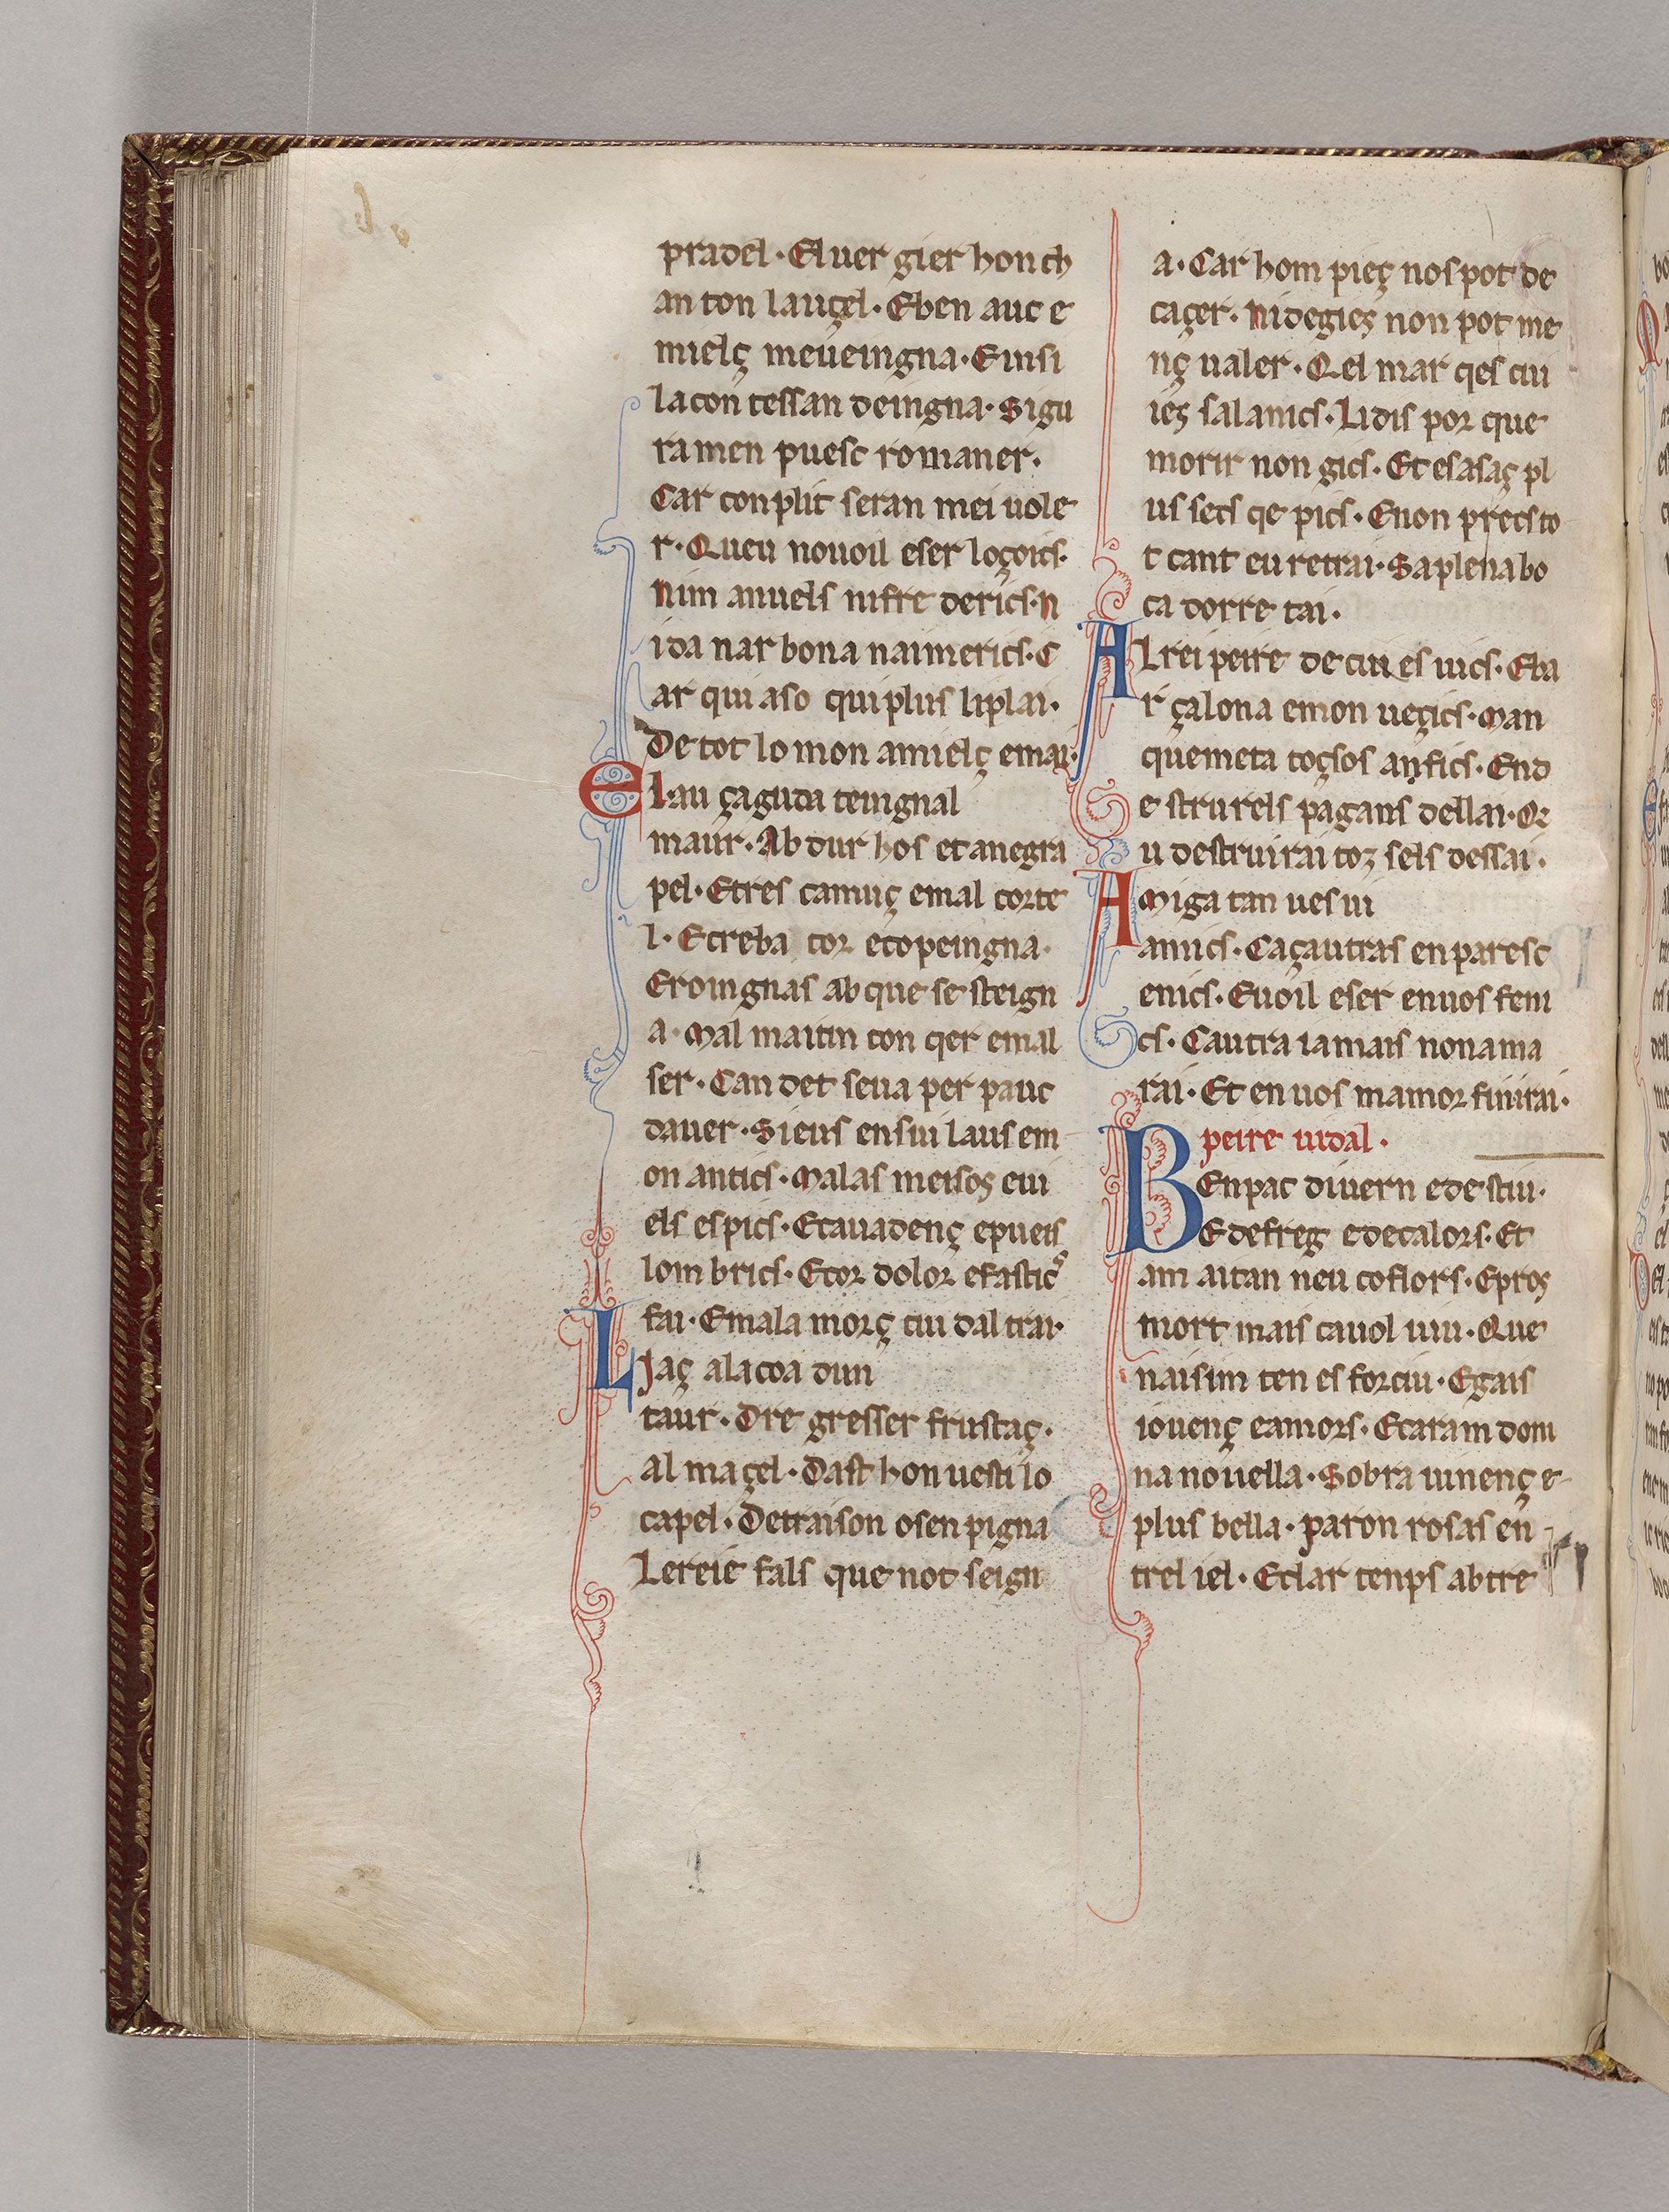 pradel· El uer gier hon ch
an ton lauçel· E ben auc e
mielç meueingna· E insi
la con tessan deingna· Sigu
ra men puesc romaner·
Car conplit seran mei uole
r· Queu nouoil eser loçoics·
Nim anuels nifre derics· n
ida nar bona naimerics· C
ar qui aso qui plus li plai·
De tot lo mon a mielç e mai·
El au çaguda teingnal
maur· Ab dur hos et anegra
pel· Etres camuç emal corte
l· Et reba tor eto peingna·
Eroingnas ab que se steign
a· Mal maitin ton qer emal
ser· Can det seua per pauc
dauer· Sieus ensiu laus em
on antics· Malas meisos eiu
els espics· Etauadenç epueis
lom brics· Etor dolor efastic
fai· Emala morç ciu dal trai·
Liaç ala coa dun
taur· Dre gresser frustaç·
al maçel· Dast hon uesti lo
capel· De traison osen pigna
Lereie fals que not seign
a· Car hom pieç nos pot de
caçer· Nide gies non pot me
nç ualer· Qel mar qes ciu
ies salanics· Li dis por que
morir non gics· Et es asaç pl
us secs qe pics· Enon precs to
t cant eu retrai· Sa plena bo
ca dorre tai·
Al rei peire de ciu es uics· Eba
r çalona emon ueçics· Man
que meta toçsos anfics· End
e strurels pagans dellai· Qe
u destruirai toz sels dessai·
Amiga tan ues iu
amics· Caçautras en paresc
enics· Euoil eser en uos feni
cs· Cautra iamais non ama
rai· Et en uos mamor finirai·
peire uidal·
Ben pac diuern e de stiu·
E de freg e de calors· Et
am aitan neu co flors· E pros
mort mais cauol uiu· Que
naisim ten es forciu· E gais
iouenç e amors· Et aram dom
na nouella· Sobra iunenç e
plus bella· paron rosas en
trel iel· E clar temps ab tre